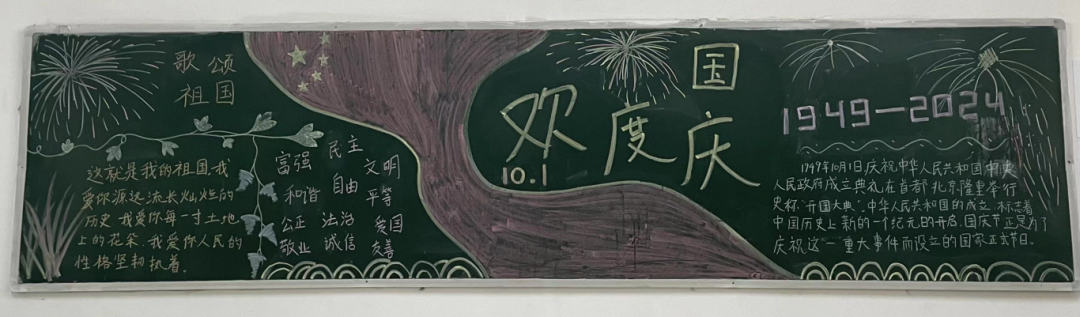 歌颂
祖国
这就是我的祖国,我
爱你源远流长灿烂的
历史,我爱你每一寸土地
上的花朵,我爱你人民的
性格坚韧执着.
富强 民主 文明
和谐 自由 平等
公正 法治 爱国
敬业 诚信 友善
欢度国庆
10.1
1949—2024
1949年10月1日庆祝中华人民共和国中央
人民政府成立典礼在首都北京隆重举行
史称“开国大典”.中华人民共和国的成立,标志着
中国历史上新的一个纪元的开启.国庆节正是为了
庆祝这一重大事件而设立的国家正式节日.